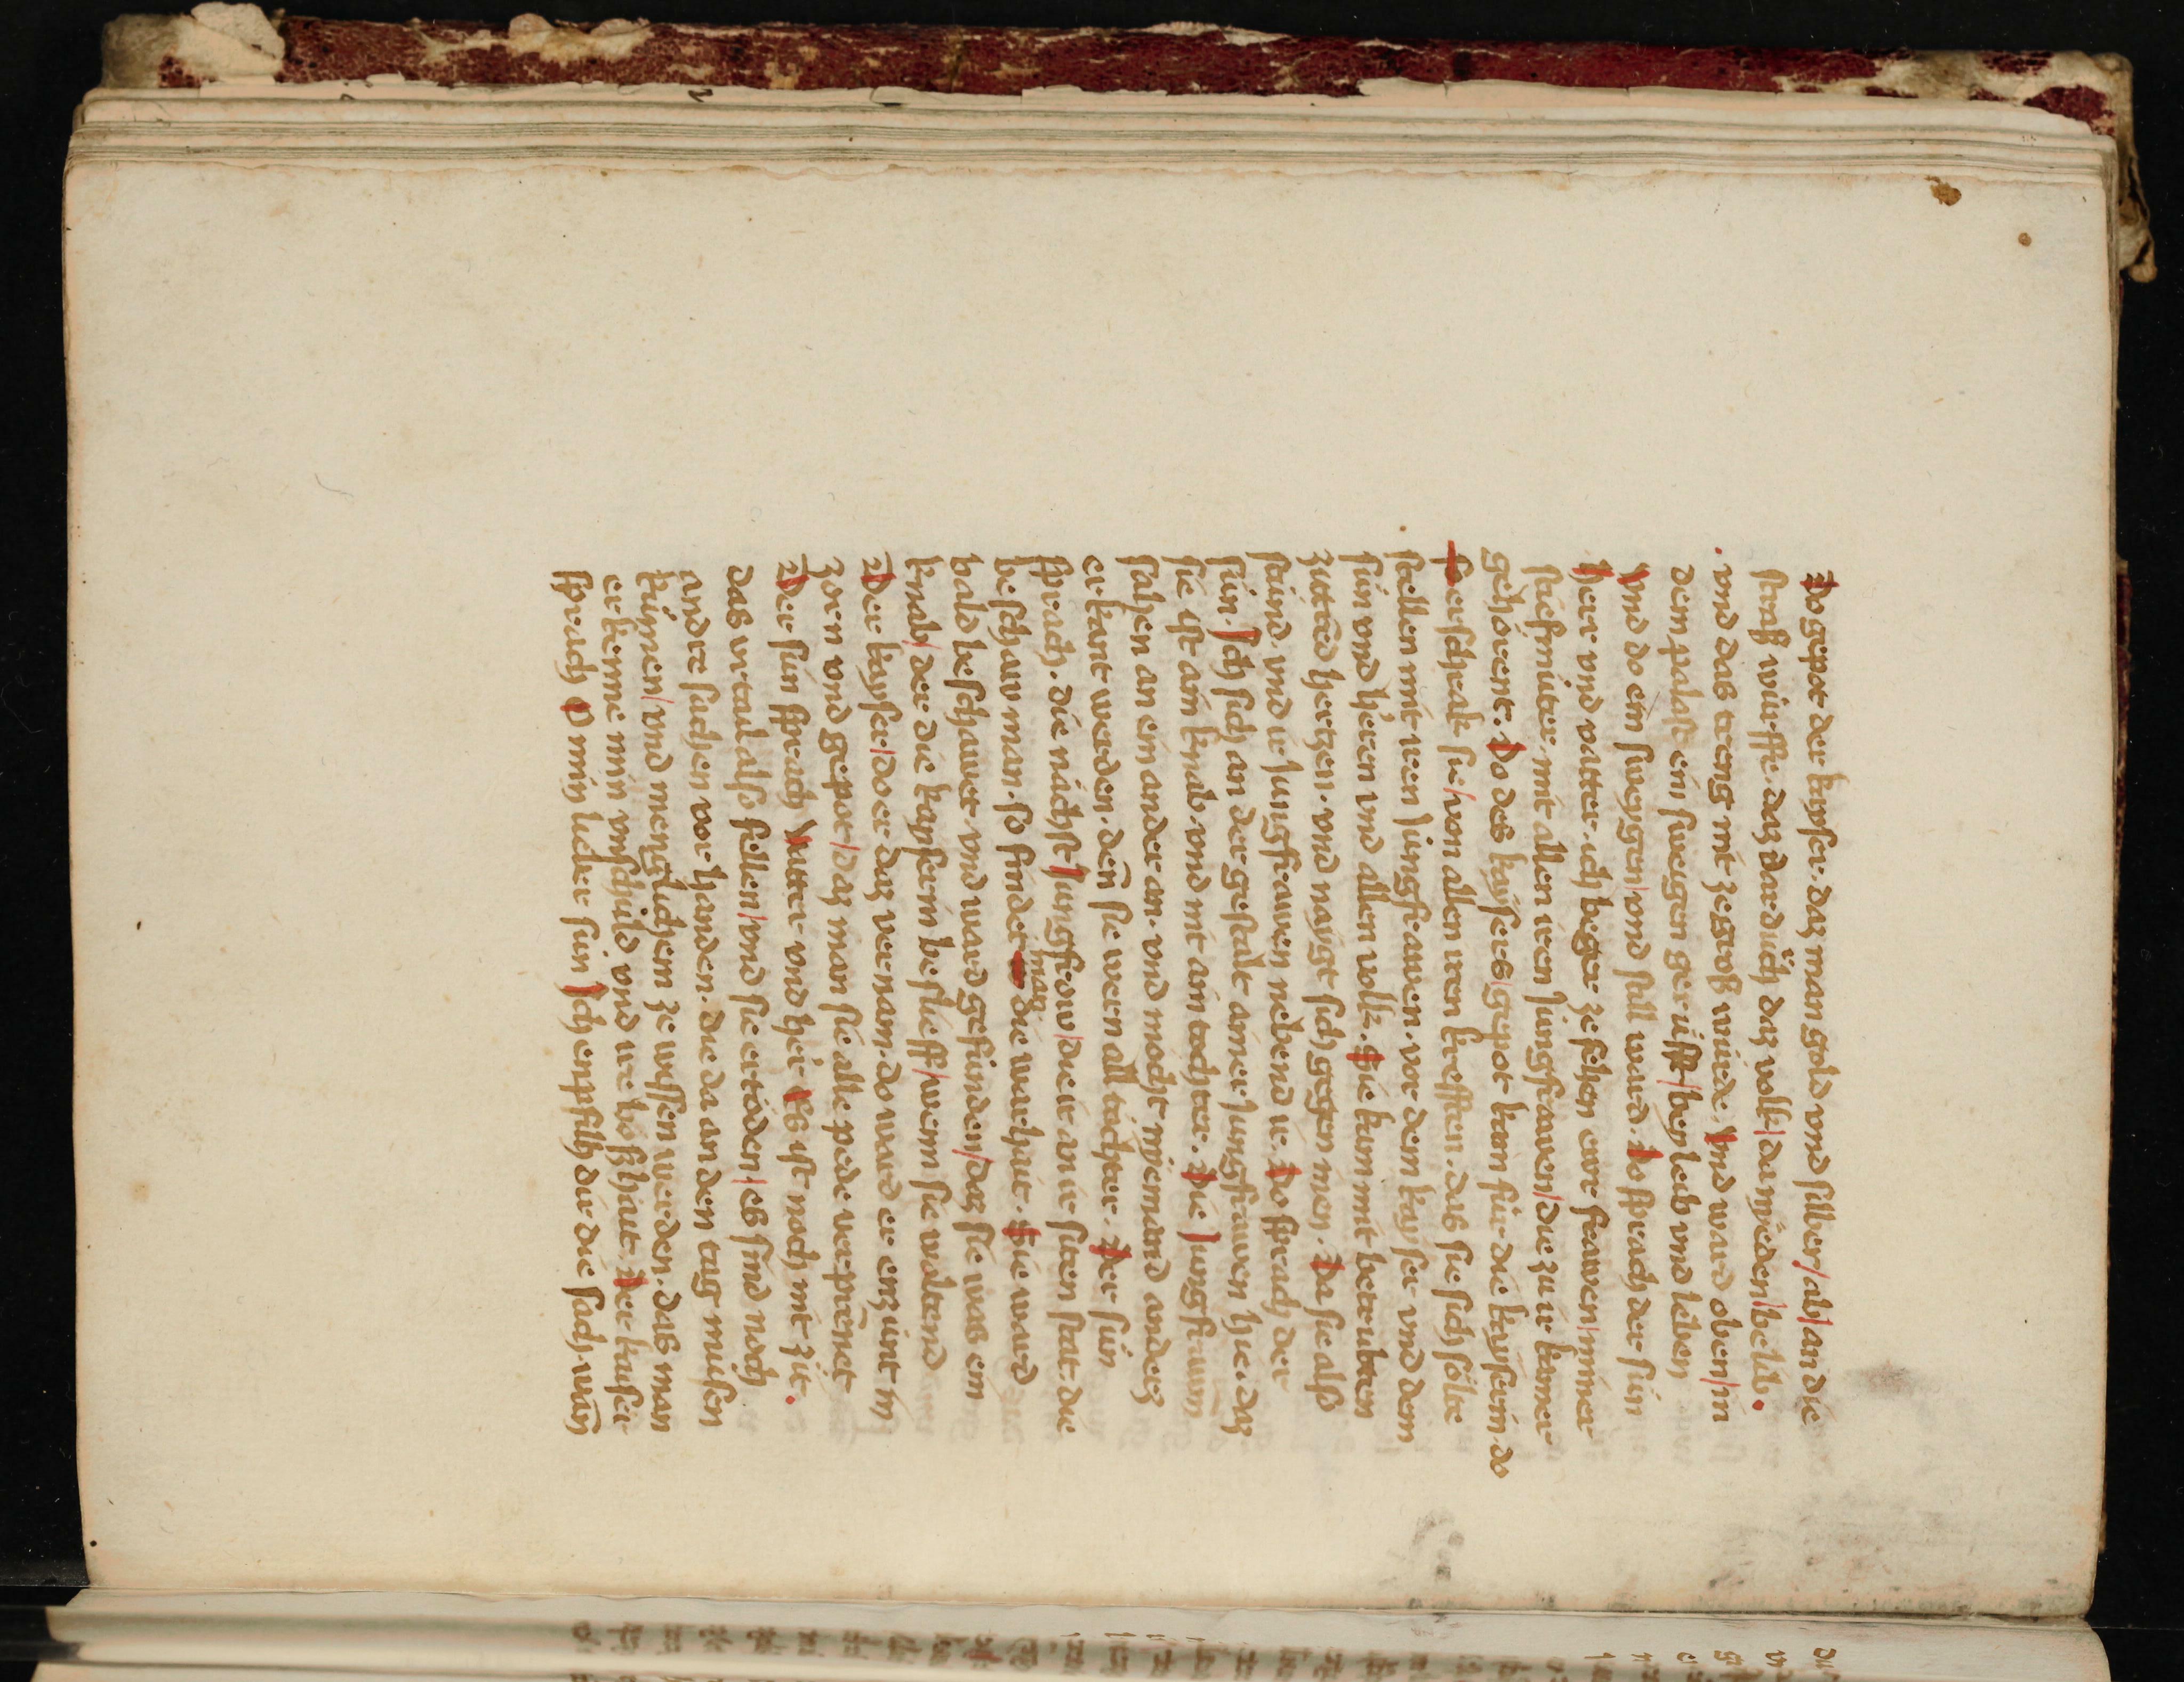 Do gepot der kayser. daz man gold vnd silber / ab / an die
straß würffe. daz dardurch daz volk / danyeden / belib.
. vnd das treng nit ze groß würde. Vnd ward oben / in
dem palast ein sweigen gerüfft / bey leib vnd leben
Vnd do ein sweygen / vnd still ward. do sprach der sün
herr vnd vatter. ich beger ze sehen ewr frawen / miner
stiefmůter. mit allen iren jungfrawen / die zu ir kamer
gehörent. Do des kaysers / gepot kam für die kayserin. do
erschrak sie / von allen iren krefften. das sie sich sölte
stellen mit iren jungfrawen. vor dem kayser vnd dem
sün vnd herren vnd allen volk. Sie kam mit betrübten
zittred hertzen. vnd naygt sich gegen inen. Da sie also
stünd. vnd ir jungfrawen nebend ir. Do sprach der
sün. sich sich an der gestalt ainer jungfrawen hie. daz
sie ist ain knab. vnd nit ain tochter. Die jungfrawn
sahen an ein ander an. vnd mocht nyemand anderz
erkant werden. denn sie weren all töchter. Der sün
sprach. die nächst jungfrow / die ir an ir siten stat. die
beschauw man. so findet man die warhait. Sie ward
bald beschawet. vnd ward gefunden / daz sie was ein
knab / der die kayserin beslieff / wenn sie woltend
Der kayser / do er daz vernam. do ward er enzünt in
zorn vnd gepot / daz man sie alle pede verprennet
Der sün sprach Vatter vnd her Es ist noch nit zit.
das vrtail also fellen / vnd sie ertöden / es sind noch
andre sachen vor handen. die da an den tag müsen
kumen / vnd menglichem ze wissen werden. das man
erkenne min vnschuld vnd ire boßhait. Der kaiser
sprach O min lieber sün Ich enpfilh dir die sach. wan